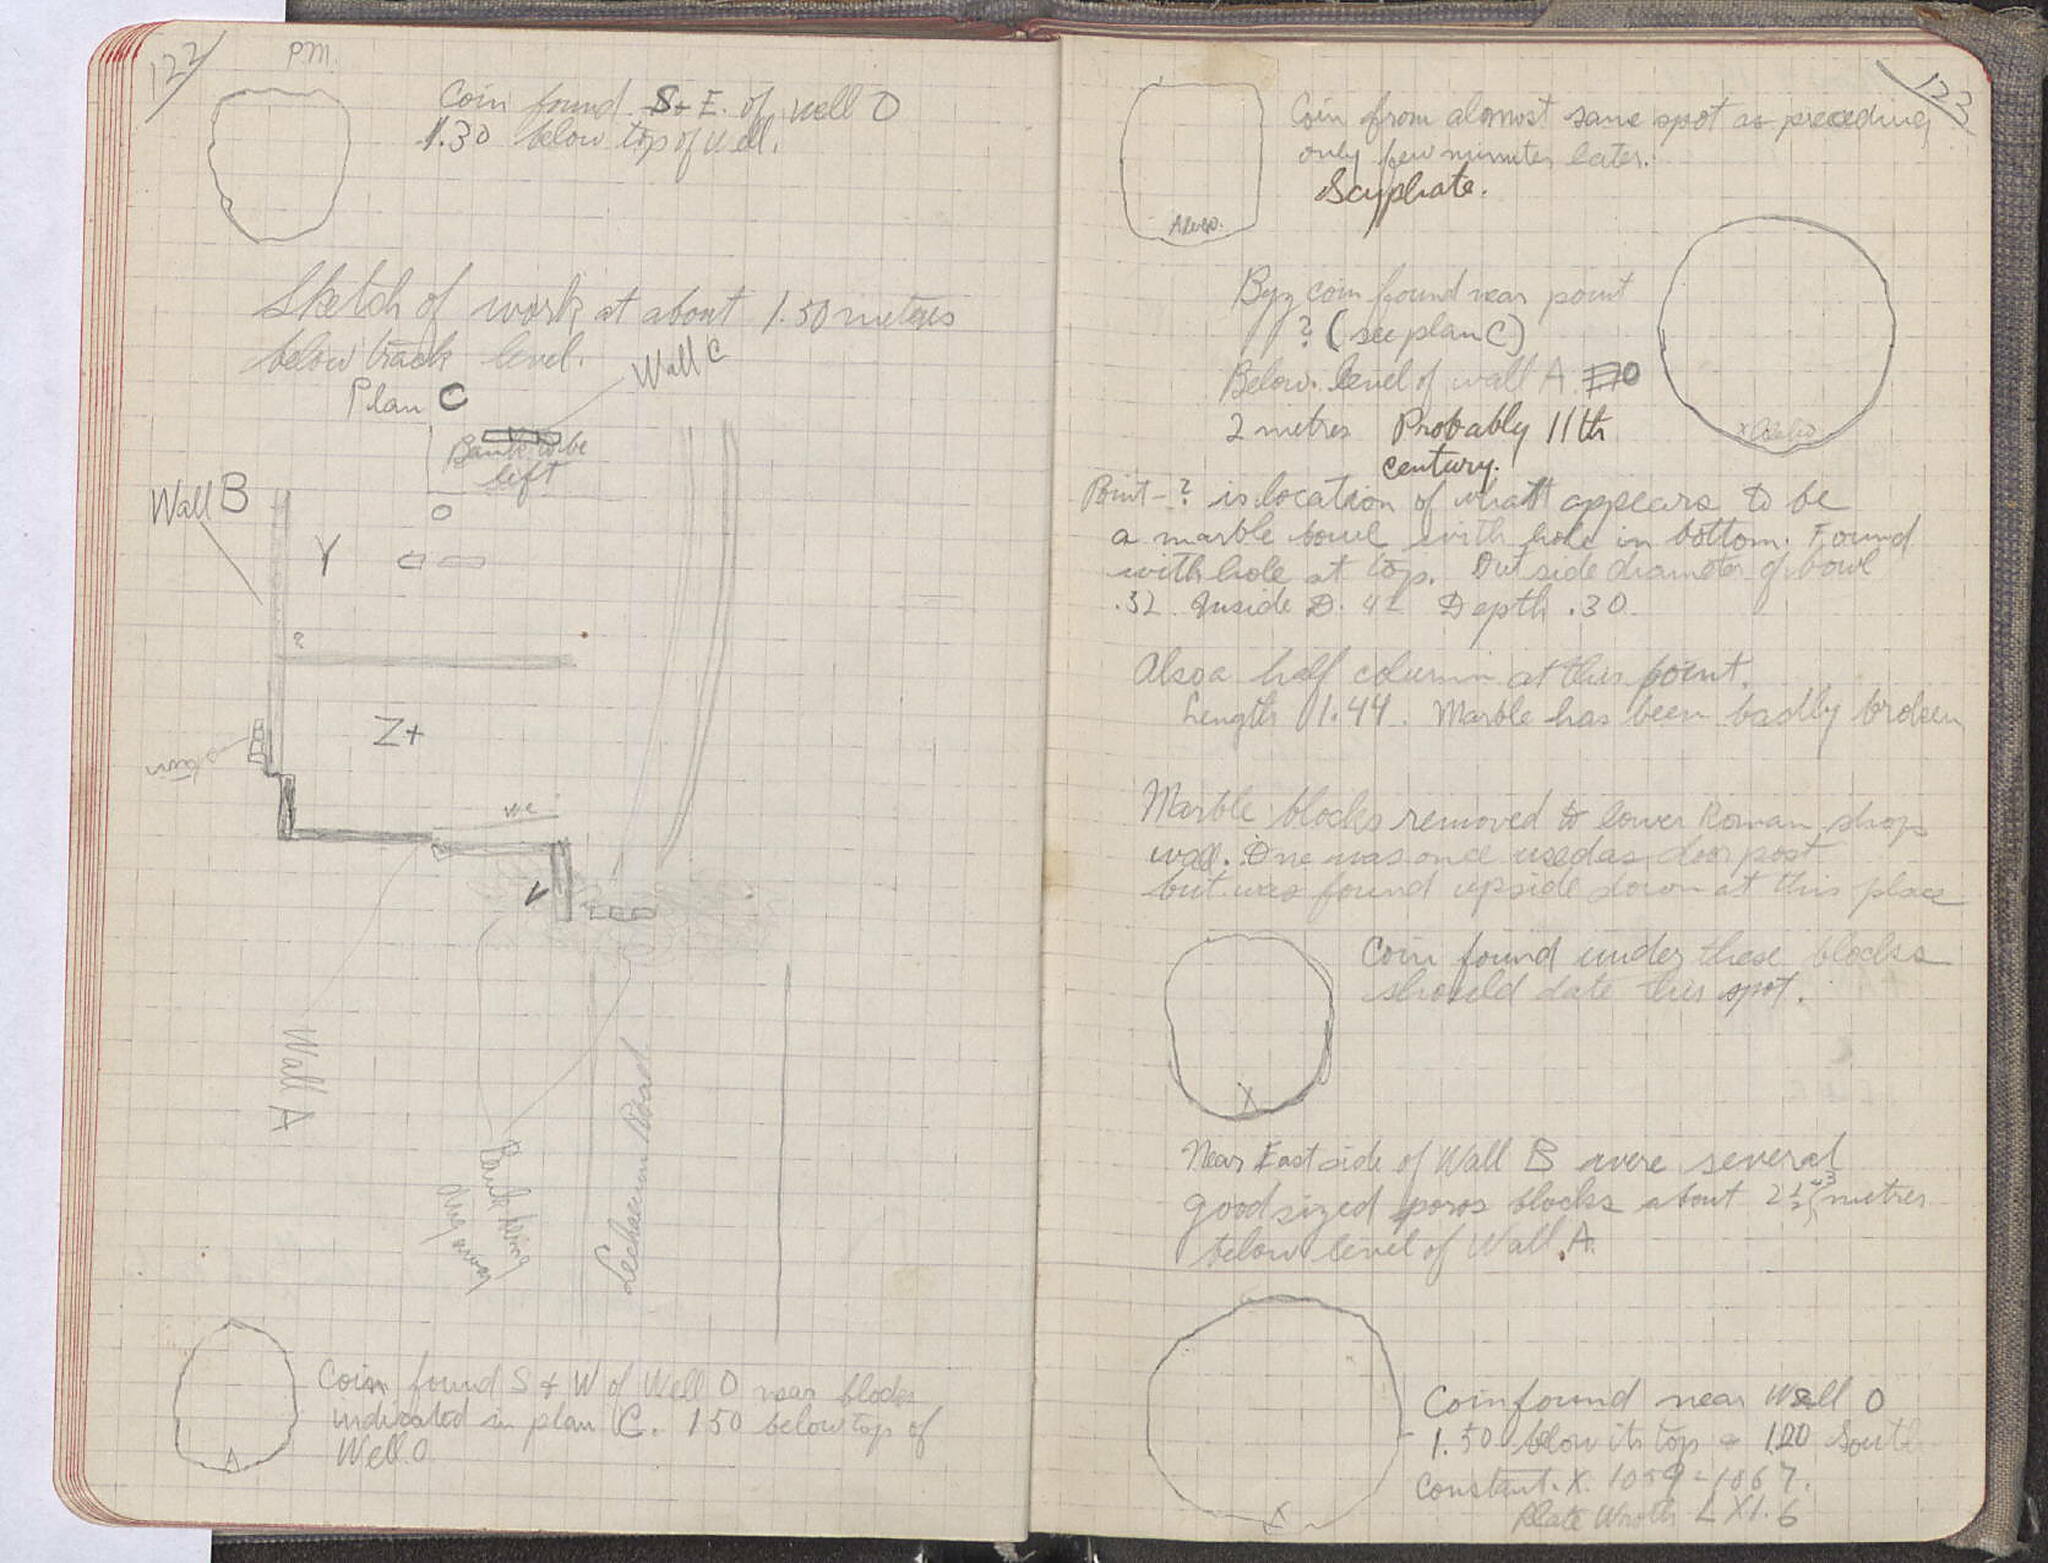 122
P.M.
Coin found S + E. of well O
1.30 below top of well.
Sketch of work at about 1.50 metres
below track level.
Wall C
Plan C
Bank to be
left
Wall B
O
Y
?
Z+
Wall A
Bank being
dug away
Lechaeum Road
Coin found S + W of Well O near blocks
indicated in plan C. 1 50 below top of
Well O
123
Coin from almost same spot as preceding
only few minutes later.
Scyphate.
Byz coin found near point
? (see plan C)
Below level of wall A
2 metres Probably 11th
century.
Point - ? is location of what appears to be
a marble bowl with hole in bottom. Found
with hole at top. Outside diameter of bowl
.32 Inside D. 42 Depth .30
Also a half column at this point.
Length 1.44. Marble has been badly broken
Marble blocks removed to lower Roman shops
wall. One was once used as door post
but was found upside down at this place
Coin found under these blocks
should date this spot.
X
Near East side of Wall B were several
good sized poros blocks about 2 1/2 metres
below level of Wall A.
Coin found near Well O
1.50 below its top + 1.20 South
Constant. X. 1059-1067.
Plate Wroth LXI. 6
X